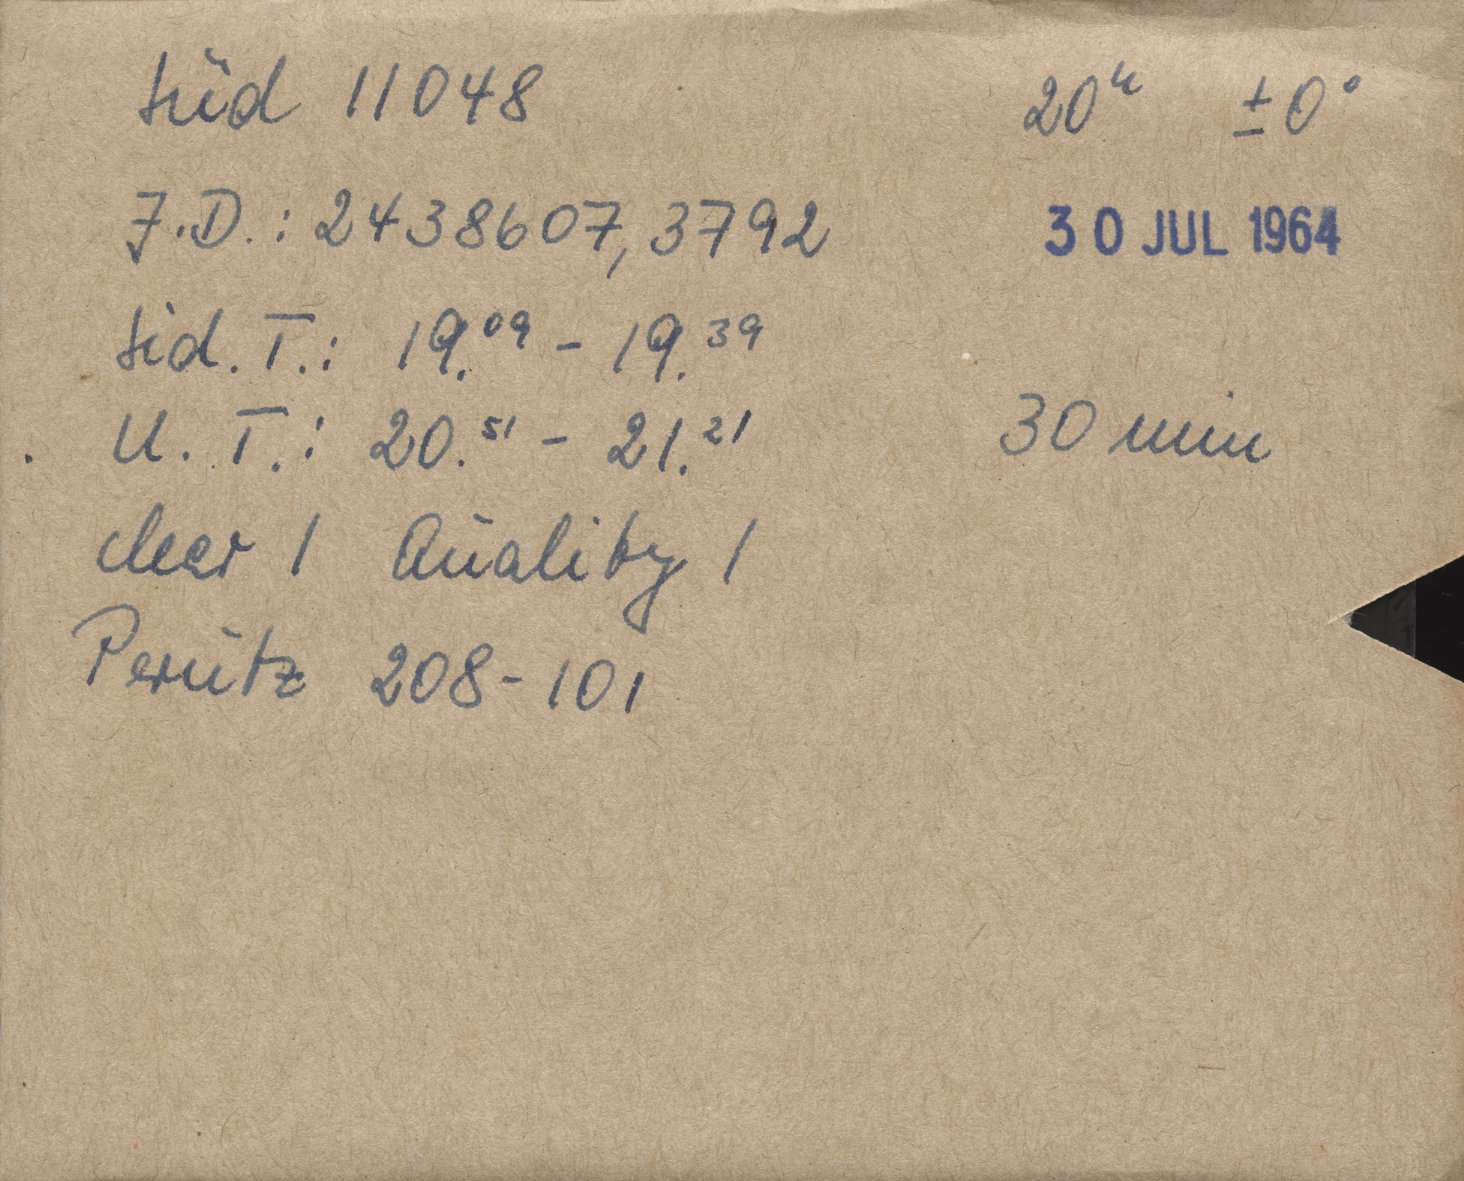 Süd 11048 20h ±0°
J.D.: 2438607,3792 30 JUL 1964
Sid. T.: 19.09 - 19.39
U. T.: 20.51 - 21.21 30 min
clear 1 Quality 1
Perutz 208-101